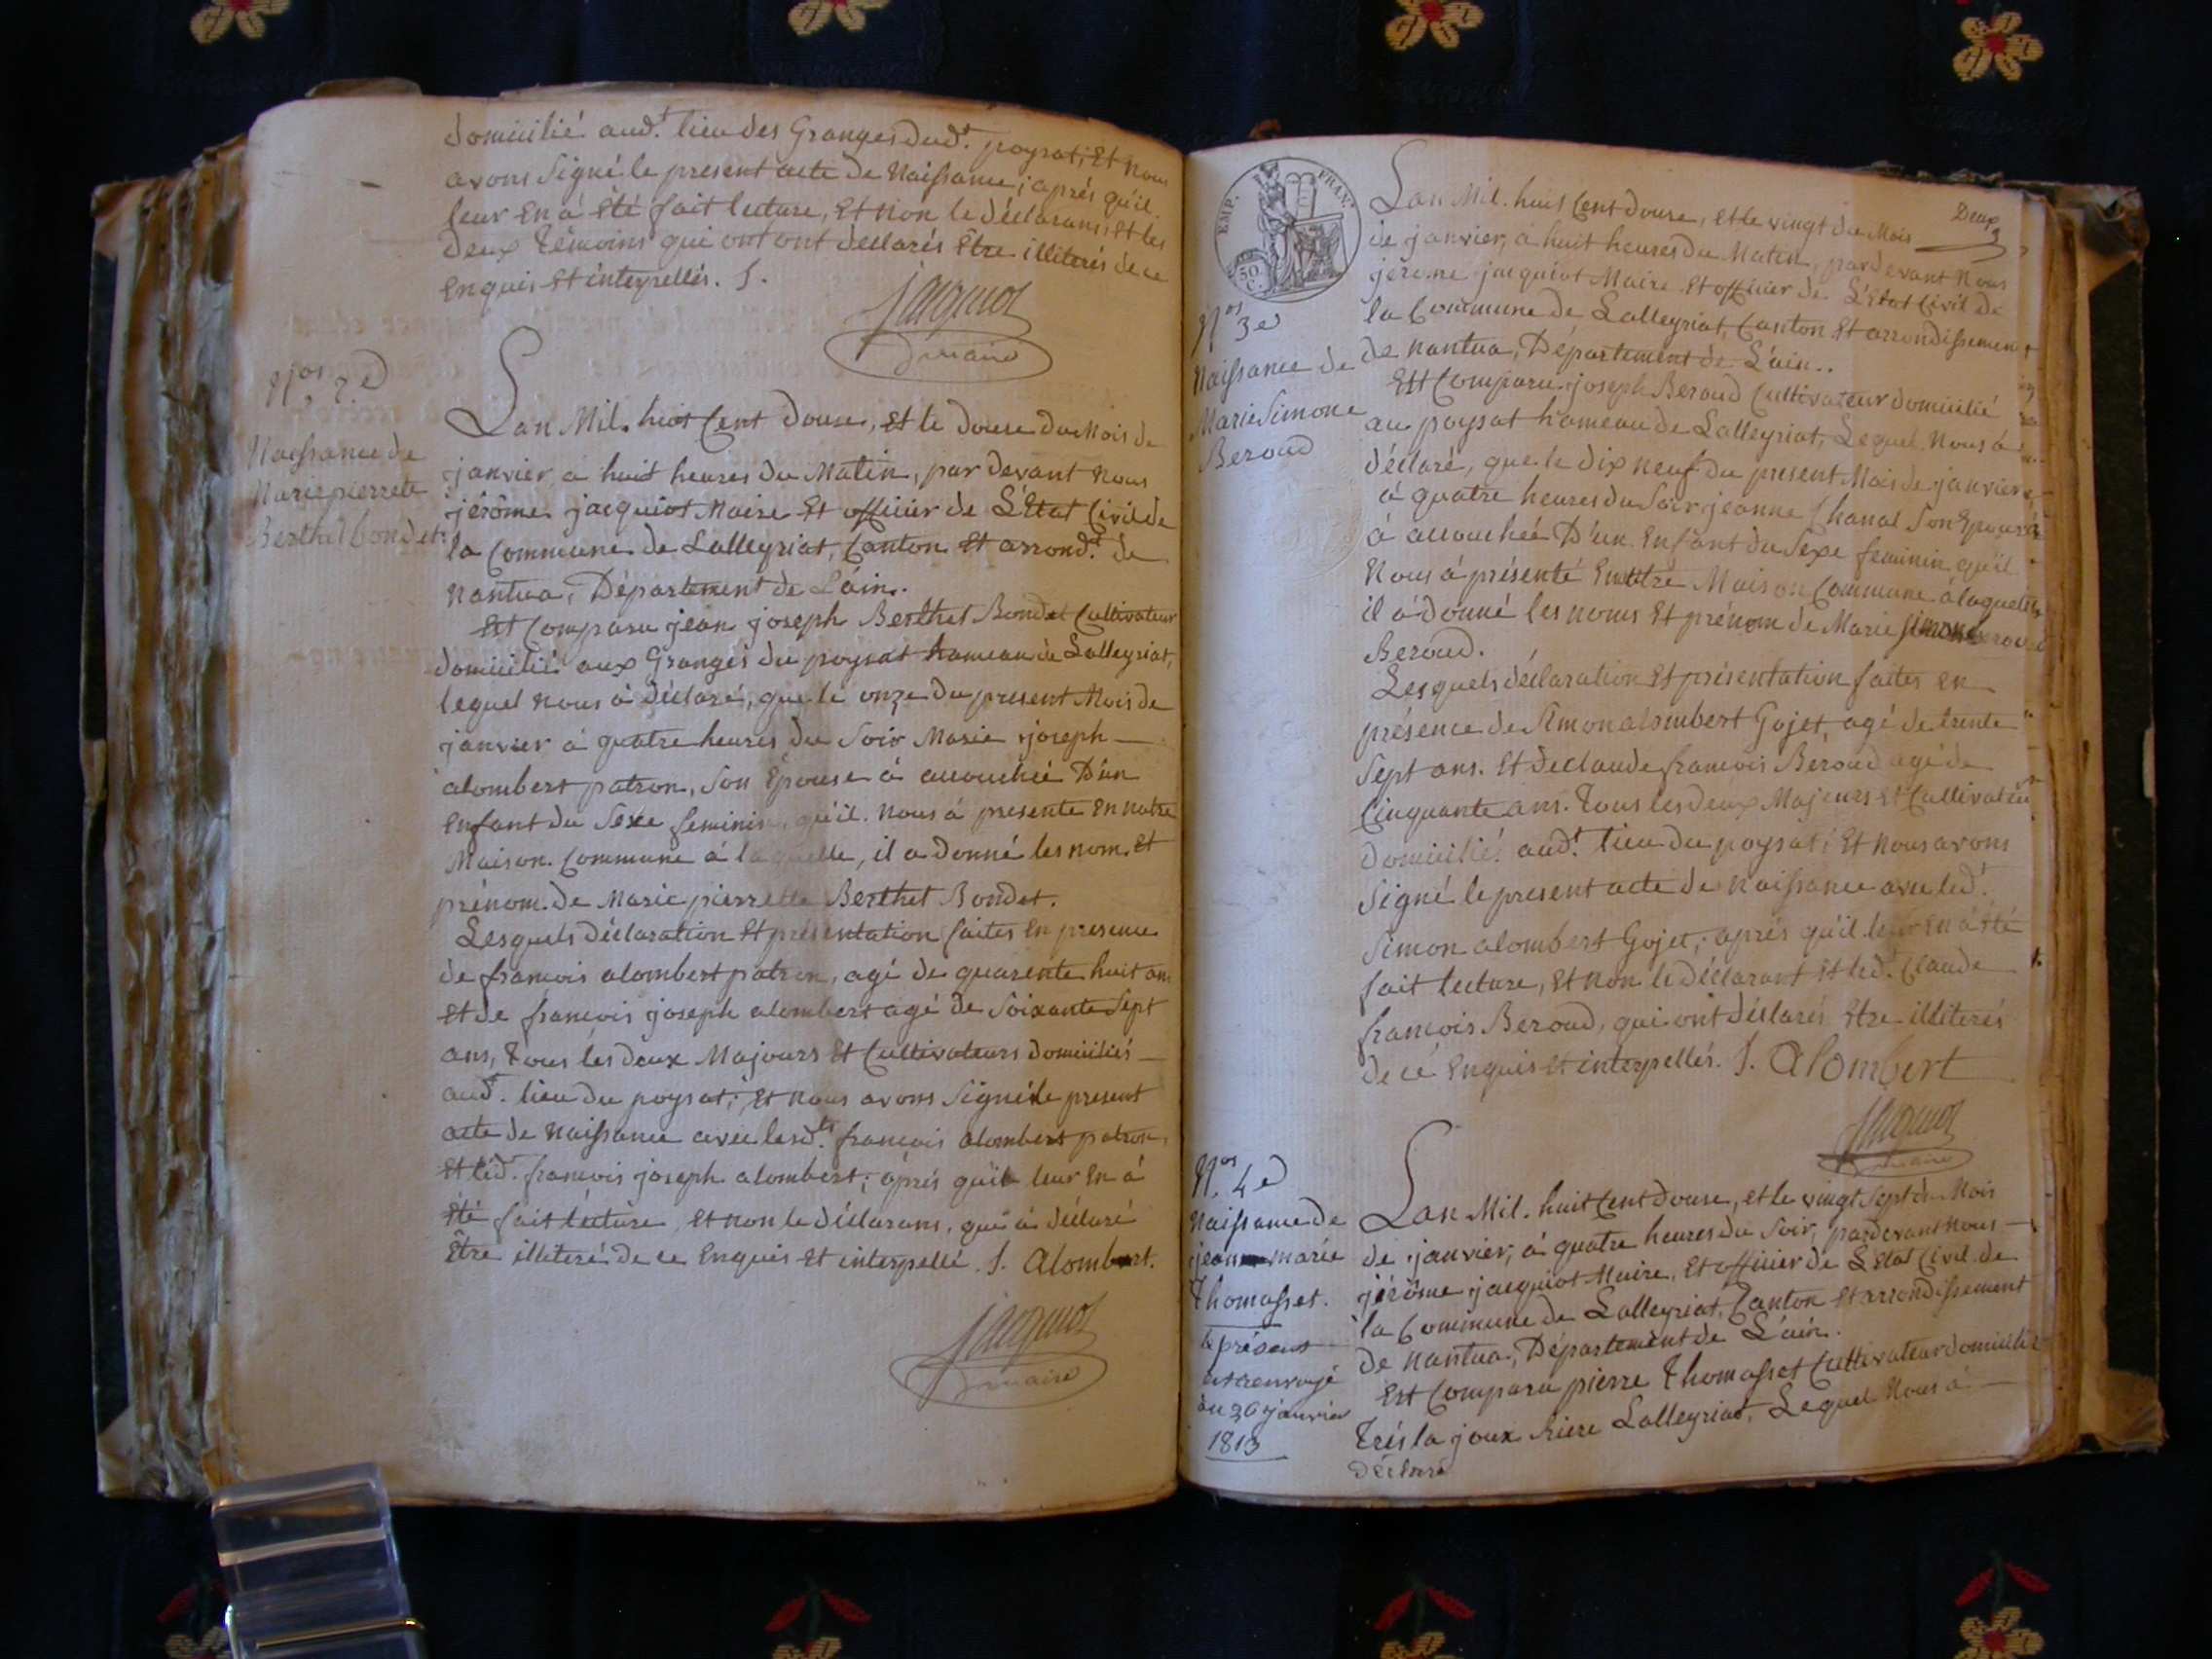 domicilié aud.t lieu des Granges dud.t poysat; Et nous
avons Signé le present acte de Naissance; aprés qu'il
leur En à été fait lecture, Et non le déclarans; Et les
deux témoins qui ont ont déclarés Être illiterés de ce
Enquis Et interpellés. J.
jaquiot
maire
N.os 2.e
Naissance de
Marie pierrette
Berthet bondet.
Lan Mil. huit Cent douse, Et le douse du Mois de
janvier, à huit heures du Matin, par devant Nous
jérôme jacquiot Maire Et officier de L'Etat Civil de
la Commune de Lalleyriat, Canton Et arrond.t de
Nantua, Département de L'ain.
Est Comparu jean joseph Berthet Bondet Cultivateur
domicilié aux Granges du poysat hameau de Lalleyriat,
lequel Nous à déclaré, que le onze du present Mois de
janvier à quatre heures du Soir Marie joseph
alombert patron, Son Épouse à accouchée D'un
Enfant du Sexe feminin, qu'il Nous à presenté En notre
Maison Commune à laquelle, il a donné les nom Et
prénom de Marie pierrette Berthet Bondet.
Lesquels déclaration Et présentation faites En presence
de francois alombert patron, agé de quarente huit ans
Et de francois joseph alombert agé de Soixante Sept
ans, tous les deux Majeurs Et Cultivateurs domiciliés
aud.t lieu du poysat; Et nous avons Signé le present
acte de Naissance avec lesd.ts francois alombert patron,
Et led.t francois joseph alombert; aprés qu'il leur En à
été fait lecture, Et non le déclarans, qui à déclaré
Être illiteré de ce Enquis Et interpellé. J. Alombert.
jaquiot
maire
EMP. FRAN.
50 C.
Deux
N.os 3e
Naissance de
Marie Simone
Beroud
Lan Mil. huit Cent douse, Et le vingt du Mois
de janvier, à huit heures du Matin, pardevant Nous
jérome jacquiot Maire Et officier de L'Etat Civil de
la Commune de Lalleyriat, Canton Et arrondissement
de Nantua, Département de L'ain.
Est Comparu joseph Beroud Cultivateur domicilié
au poysat hameau de Lalleyriat, Lequel Nous à
déclaré, que le dix neuf du present Mois de janvier
à quatre heures du Soir jeanne Chanal Son Epouse
à accouchée D'un Enfant du Sexe feminin qu'il
Nous à présenté En notre Maison Commune à laquelle
il à donné les noms Et prénom de Marie Simone
Beroud.
Lesquels déclaration Et présentation faites En
présence de Simon alombert Gojet, agé de trente
Sept ans. Et de claude francois Béroud agé de
Cinquante ans. Tous les deux Majeurs Et Cultivateurs
domicilié aud.t lieu du poysat; Et nous avons
Signé le present acte de Naissance avec led.t
Simon alombert Gojet; aprés qu'il leur En à été
fait lecture, Et non le déclarant Et led.t Claude
francois Beroud, qui ont déclarés Être illiterés
de cé Enquis Et interpellés. J. Alombert
jaquiot
maire
N.os 4e
Naissance de
jean marie
Thomasset.
le présent
est renvoyé
au 26 janvier
1813
Lan Mil. huit Cent douse, et le vingt Sept du Mois
de janvier, à quatre heures du Soir, pardevant Nous
jérôme jacquiot Maire, Et officier de L'Etat Civil de
la Commune de Lalleyriat, Canton Et arrondissement
de Nantua, Département de L'ain.
Est Comparu pierre Thomasset Cultivateur domicilié
Trés la joux Riere Lalleyriat, Lequel Nous à
déclaré